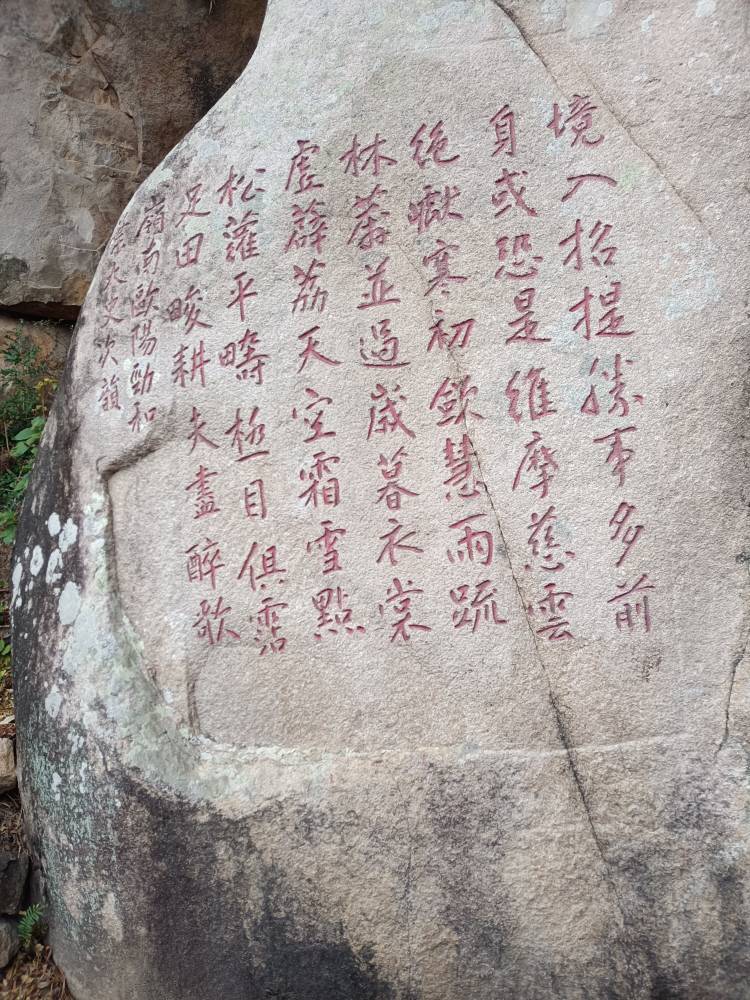 境入招提勝事多前
身或恐是維摩慈雲
絶巘寒初斂慧雨疏
林並過歲暮衣裳
虛薜荔天空霜雪點
松蘿平疇極目俱霑
足田畯耕夫盡醉歌
嶺南歐陽勁和
太史韻